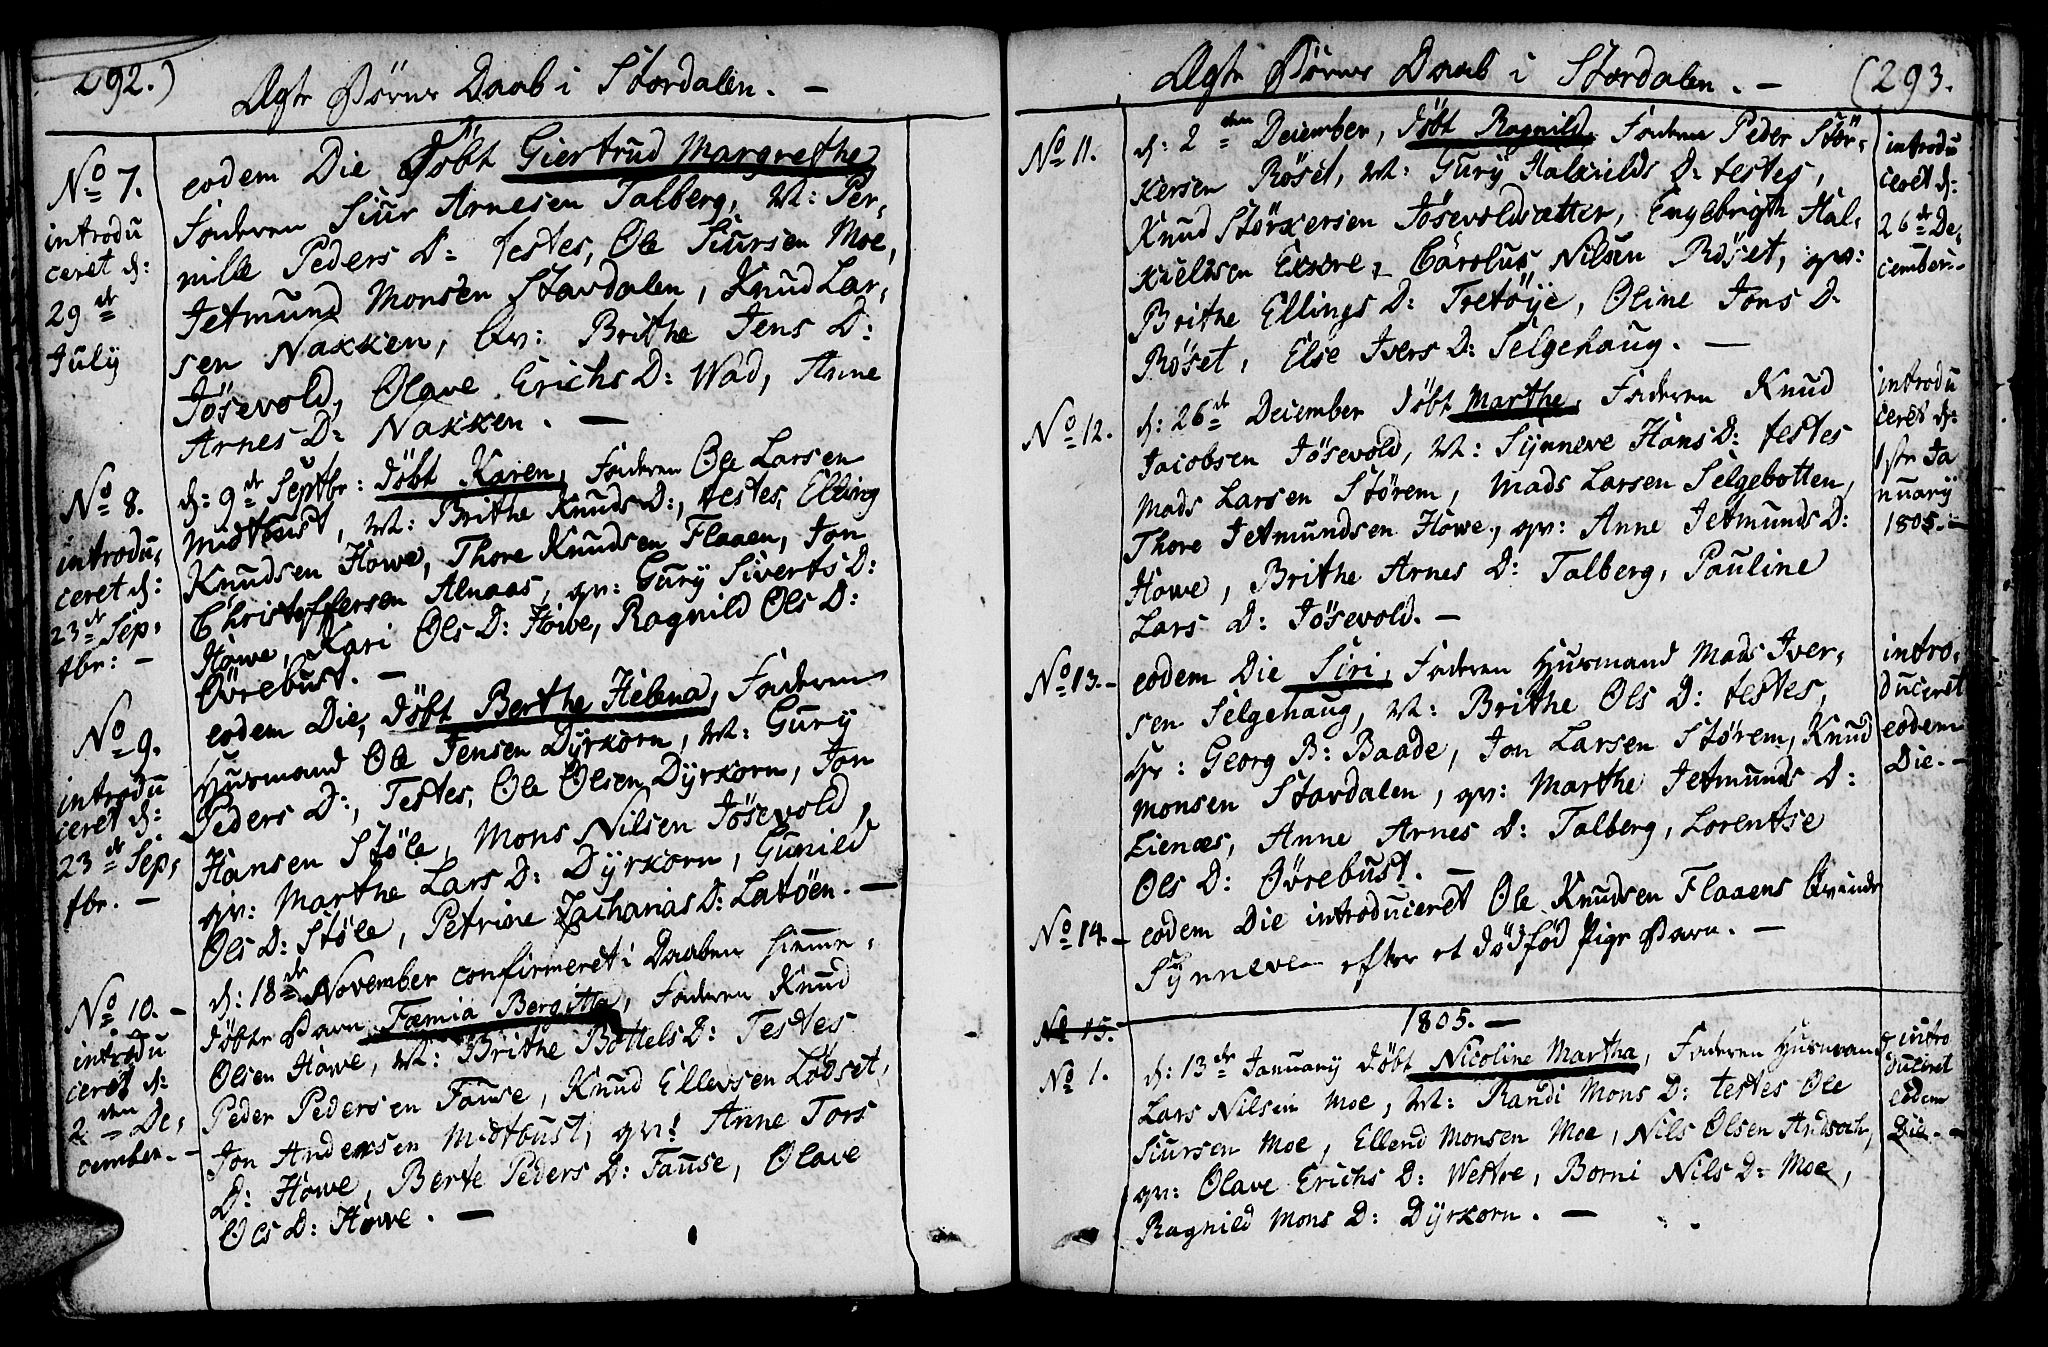 292.)
Ægte Børns Daab i Stordalen. —
No 7.
introdu
ceret d:
29de
July
eodem Die Døbt Giertrud Margrethe,
Faderen Siur Arnesen Talberg, M: Per-
nille Peders D: testes, Ole Siursen Moe,
Jetmund Monsen Stavdalen, Knud Lar-
sen Nakken, Qv: Brithe Jens D:
Jösevold, Olave Erichs D: Wad, Anne
Arnes D: Nakken. —
No 8.
introdu,
ceret d:
23de Sep,
tbr: —
d: 9de Septbr: døbt Karen, Faderen Ole Larsen
Midtbust, M: Brithe Knuds D:, testes, Elling
Knudsen Howe, Thore Knudsen Flaaen, Jon
Christoffersen Alnaas, qv: Gury Siverts D:
Howe, Kari Ols D: Howe, Ragnild Ols D:
Øvrebust. —
No 9.
introdu
ceret d:
23de Sep,
tbr. —
eodem Die, døbt Berthe Helena, Faderen
Husmand Ole Jensen Dÿrkorn, M: Gury
Peders D:, Testes, Ole Olsen Dÿrkorn, Jon
Hansen Støle, Mons Nilsen Jösevold,
qv: Marthe Lars D: Dÿrkorn, Gunild
Ols D: Støle, Petrine Zacharias D: Latøen. —
No 10. —
introdu
ceret d:
2den De,
cember. —
d: 18de November confirmeret i Daaben hieme,
døbte Barn Fæmia Bergitta, Faderen Knud
Olsen Howe, M: Brithe Bottels D: Testes
Peder Pedersen Fause, Knud Ellevsen Lødset,
Jon Andersen Midtbust, qv: Anne Tors
D: Howe, Berte Peders D: Fause, Olave
Ols D: Howe. —
Ægte Børns Daab i Stordalen. —
(293.
No 11.
d: 2den December, døbt Ragnild, Faderen Peder Stör-
kersen Röset, M: Gurÿ Halkields D: testes,
Knud Störkersen Jösevoldsætter, Engebrigth Hal-
kieldsen Exsore, Carolus Nilsen Röset, qv:
Brithe Ellings D: Tretöÿe, Oline Jons D:
Röset, Else Ivers D: Selgehaug. —
introdu
ceret d:
26de De,
cember. —
No 12.
d: 26de December døbt Marthe, Faderen Knud
Jacobsen Jösevold, M: Sÿnneve Hans D: testes
Mads Larsen Störem, Mads Larsen Selgebotten,
Thore Jetmundsen Howe, qv: Anne Jetmunds D:
Howe, Brithe Arnes D: Talberg, Pauline
Lars D: Jösevold. —
introdu
ceret d:
1ste Ja
nuarÿ
1805. —
No 13. —
eodem Die Siri, Faderen Husmand Mads Iver-
sen Selgehaug, M: Brithe Ols D: testes,
Hr: Georg B: Baade, Jon Larsen Störem, Knud
Monsen Stavdalen, qv: Marthe Jetmunds D:
Lienæs, Anne Arnes D: Talberg, Lorentse
Ols D: Övrebust. —
intro,
duceret
eodem
Die. —
No 14. —
eodem Die introduceret Ole Knudsen Flaaens Qvinde
Sÿnneve efter et dödföd Pige Barn. —
No 15.
1805. —
No 1.
d: 13de Januarÿ døbt Nicoline Martha, Faderen Husmand
Lars Nilsen Moe, M: Randi Mons D: testes Ole
Siursen Moe, Ellend Monsen Moe, Nils Olsen Andsoeh,
qv: Olave Erichs D: Westre, Borni Nils D: Moe,
Ragnild Mons D: Dÿrkorn. —
intro
duceret
eodem
Die. —